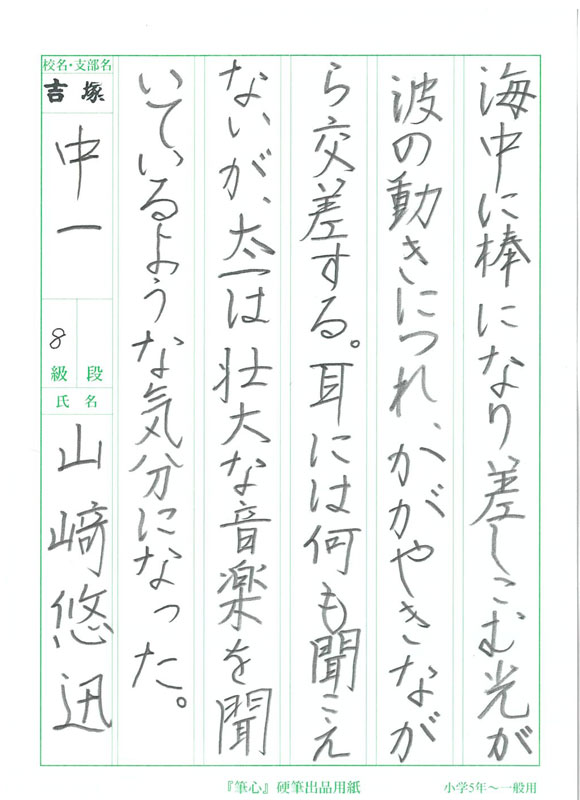 海中に棒になり差しこむ光が
波の動きにつれ、かがやきなが
ら交差する。耳には何も聞こえ
ないが、太一は壮大な音楽を聞
いているような気分になった。
校名・支部名
吉塚
中一
段
級
8
氏名
山﨑悠迅
『筆心』硬筆出品用紙
小学5年～一般用